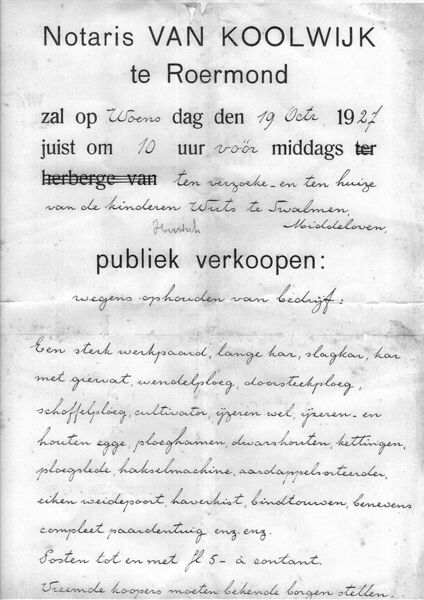 Notaris VAN KOOLWIJK
te Roermond
zal op Woens dag den 19 Octr 1927
juist om 10 uur vóór middags ter
herberge van ten verzoeke en ten huize
van de kinderen Wuts te Swalmen,
Middeloven.
publiek verkoopen:
wegens ophouden van bedrijf:
Een sterk werkpaard, lange kar, slagkar, kar
met giervat, wendelploeg, doorsteekploeg,
schoffelploeg, cultivator, ijzeren wel, ijzeren- en
houten egge, ploeghamen, dwarshouten, kettingen,
ploegslede, hakselmachine, aardappelsorteerder,
eiken weidepoort, haverkist, bindtouwen, benevens
compleet paardentuig enz. enz.
Posten tot en met fl 5- à contant.
Vreemde koopers moeten bekende borgen stellen.